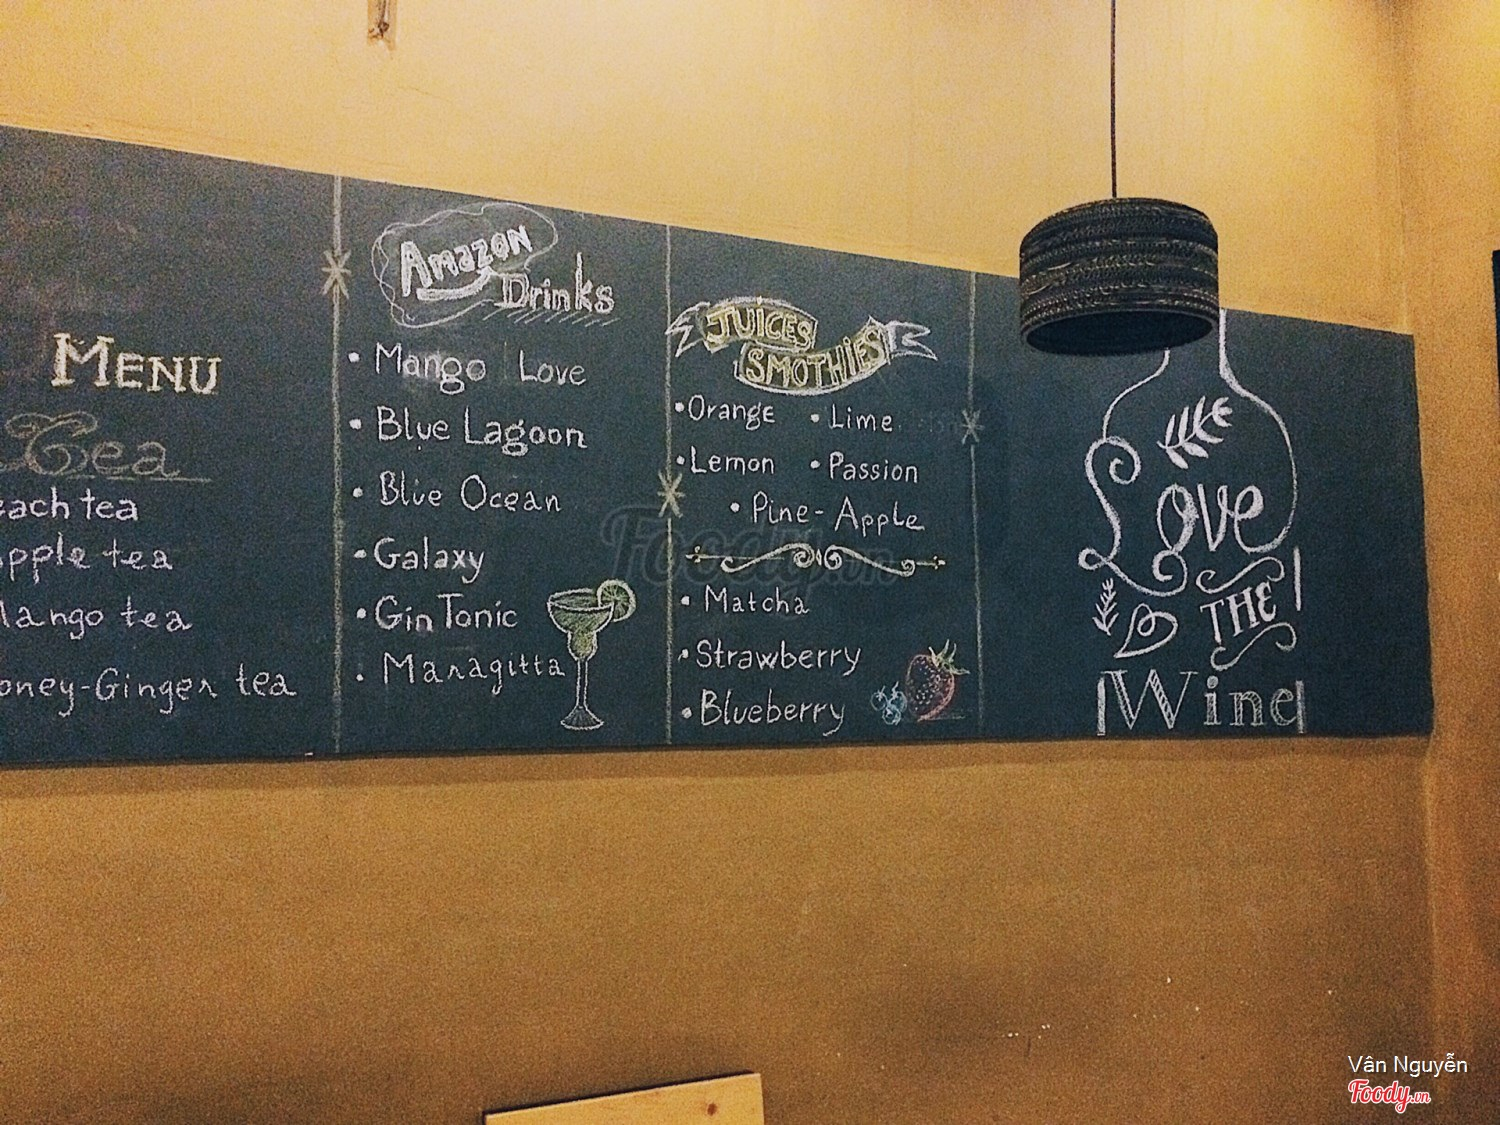 MENU
Tea
each tea
pple tea
ango tea
oney-Ginger tea
Amazon
Drinks
• Mango Love
• Blue Lagoon
• Blue Ocean
• Galaxy
• Gin Tonic
• Maragitta
JUICES
SMOTHIES
• Orange • Lime
• Lemon • Passion
• Pine-Apple
• Matcha
• Strawberry
• Blueberry
Love
THE
Wine
Foody.vn
Vân Nguyễn
Foody.vn